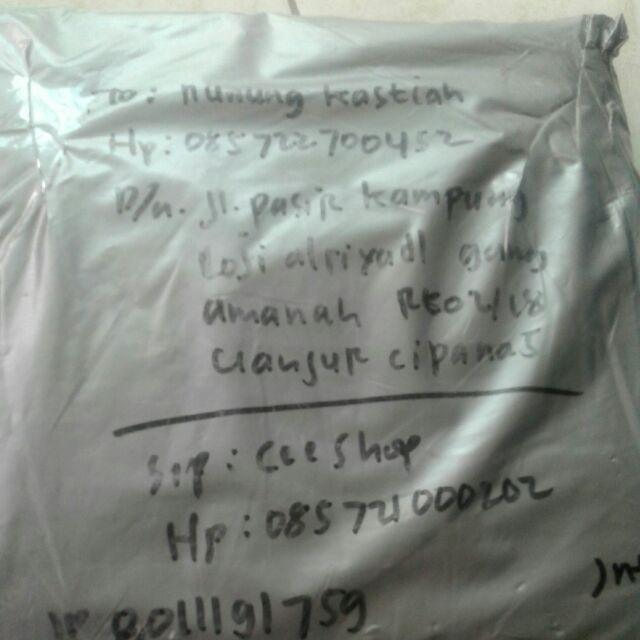 To: nunung kastiah
Hp: 085722700452
D/n. jl. pasir kampung
Losi alriyadl gang
amanah Rt02/18
cianjur cipanas
Srp: cceshop
Hp: 085721000202
8011191759